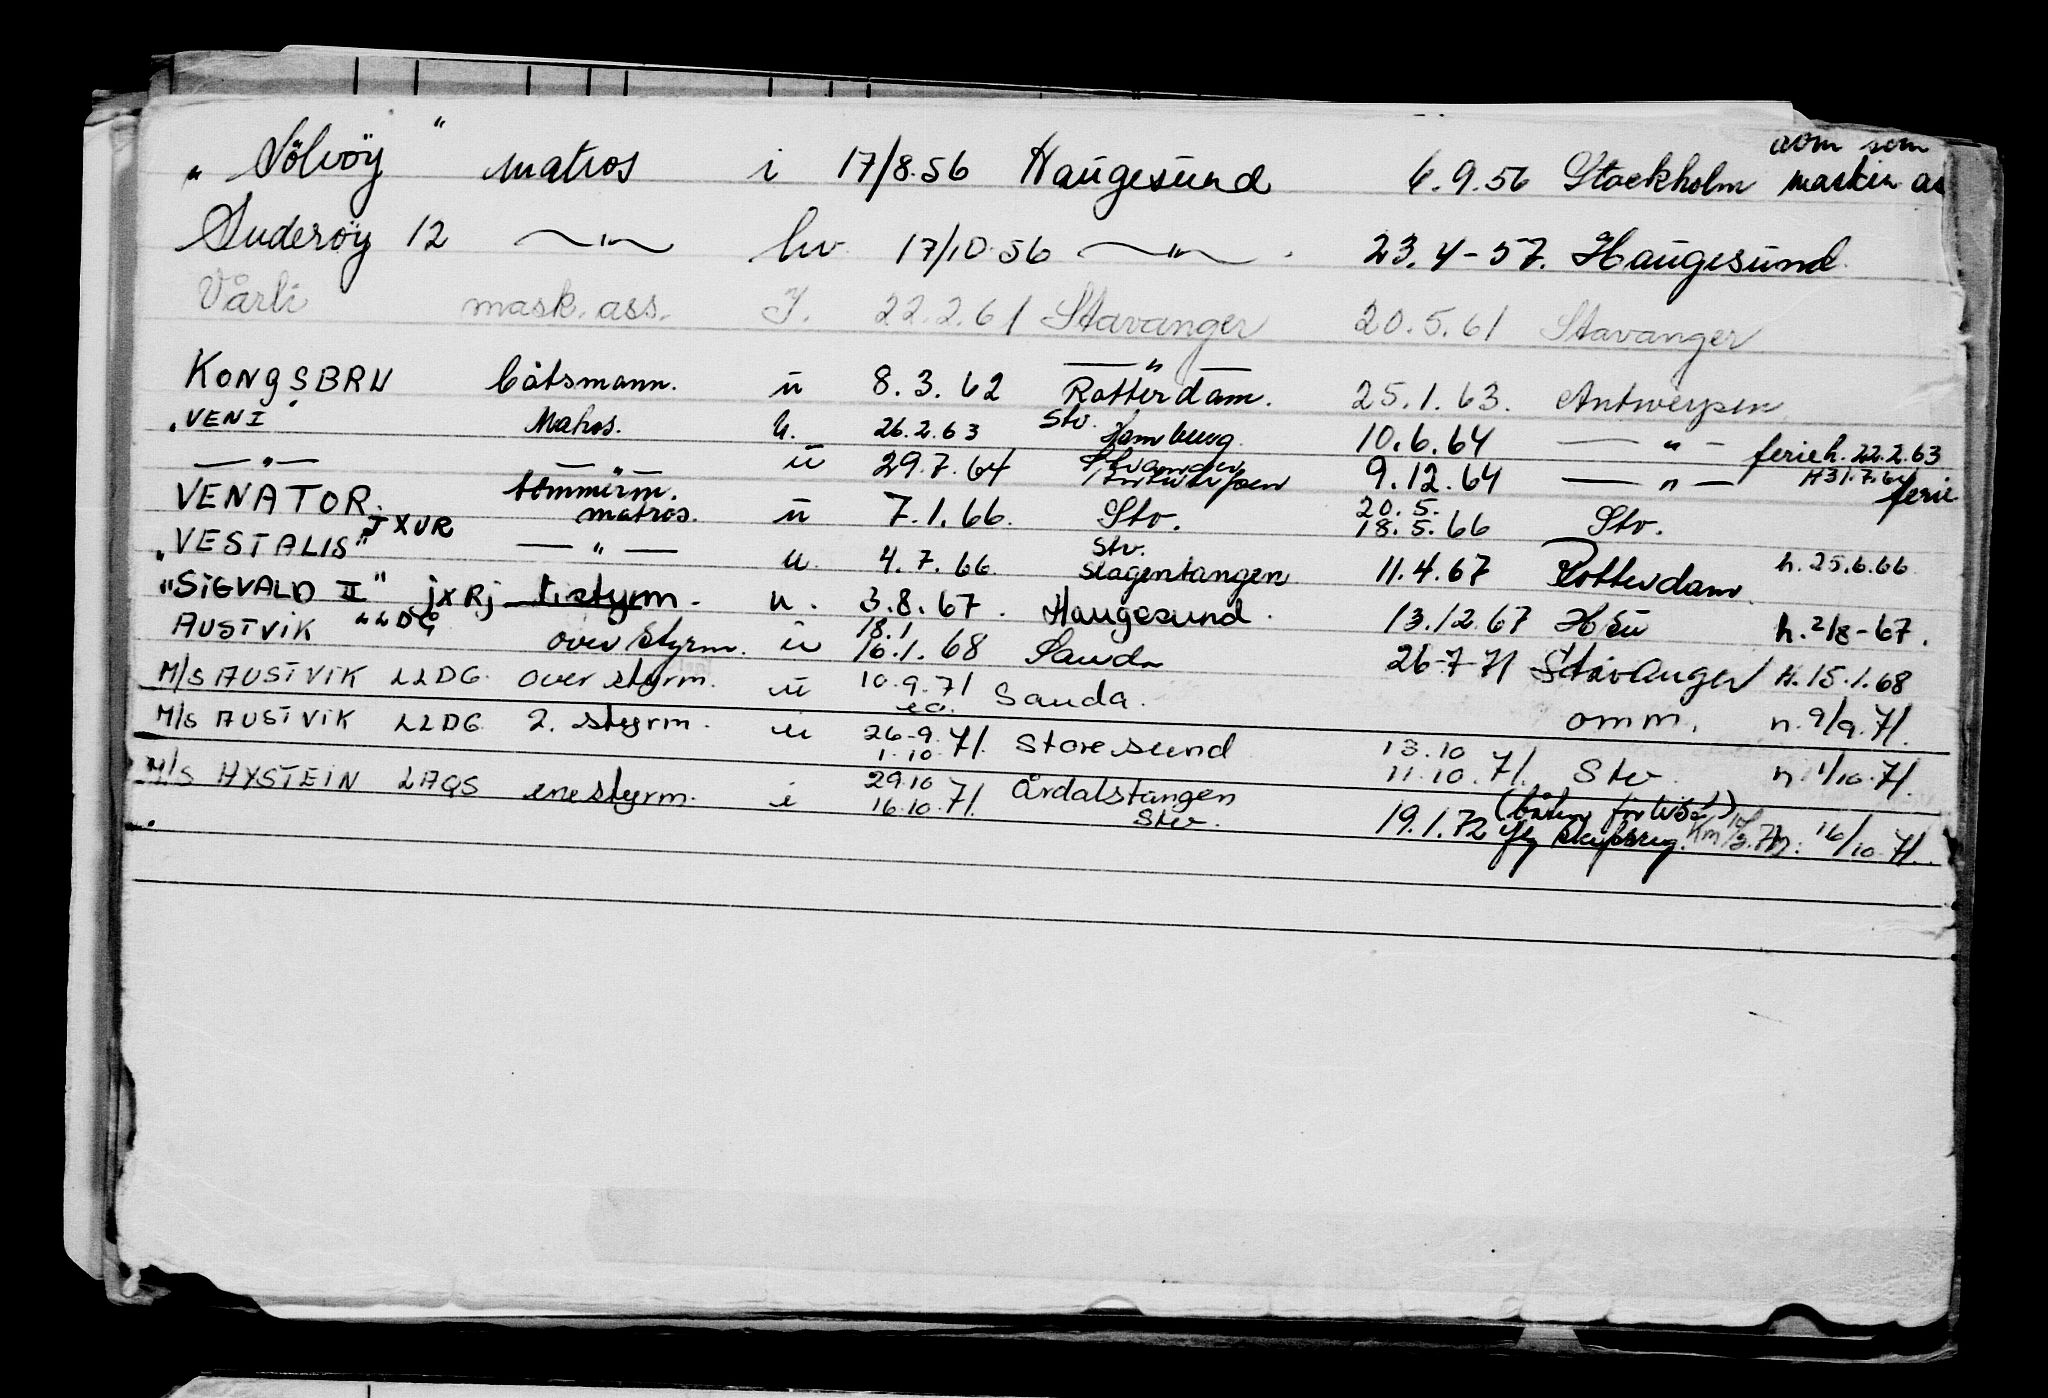 omm som
" Sölvöy " matros i 17/8.56 Haugesund 6.9.56 Stockholm maskin as
Suderöy 12 —"— hv. 17/10.56 —"— . 23.4-57. Haugesund.
Vårli mask. ass. I. 22.2.61 Stavanger 20.5.61 Stavanger
KONGSBRU båtsmann. u 8.3.62 —"— Rotterdam. 25.1.63. Antwerpen
"VENI" Matros. u. 26.2.63 Stv. Hamburg. 10.6.64 —"— ferie h. 22.2.63
—"— —"— u 29.7.64 Stavanger Antwerpen 9.12.64 —"— H 31.7.64 ferie
VENATOR. tömmerm. matros. u 7.1.66. Stv. 20.5. 18.5.66 Stv.
"VESTALIS" JXUR —"— u. 4.7.66 Stv. Slagentangen 11.4.67 Rotterdam. h. 25.6.66
"SIGVALD II" jxRj 1. styrm. u. 3.8.67. Haugesund. 13.12.67 H. 2/8-67.
AUSTVIK LLDG over styrm. u 18.1 16.1.68 Sauda 26-7-71 Stavanger H. 15.1.68
M/S AUSTVIK LLDG. over styrm. u 10.9.71 Sauda. omm. n. 9/9.71.
M/S AUSTVIK LLDG 2. styrm. u 26-9. 1.10.71. Storesund 13.10 11.10.71. Stv. n 1/10.71.
M/S HYSTEIN LAQS enestyrm. i 29.10 16.10.71. Årdalstangen Stv. 19.1.72 (båten forlist) ifg skipsreg. 16/10.71.